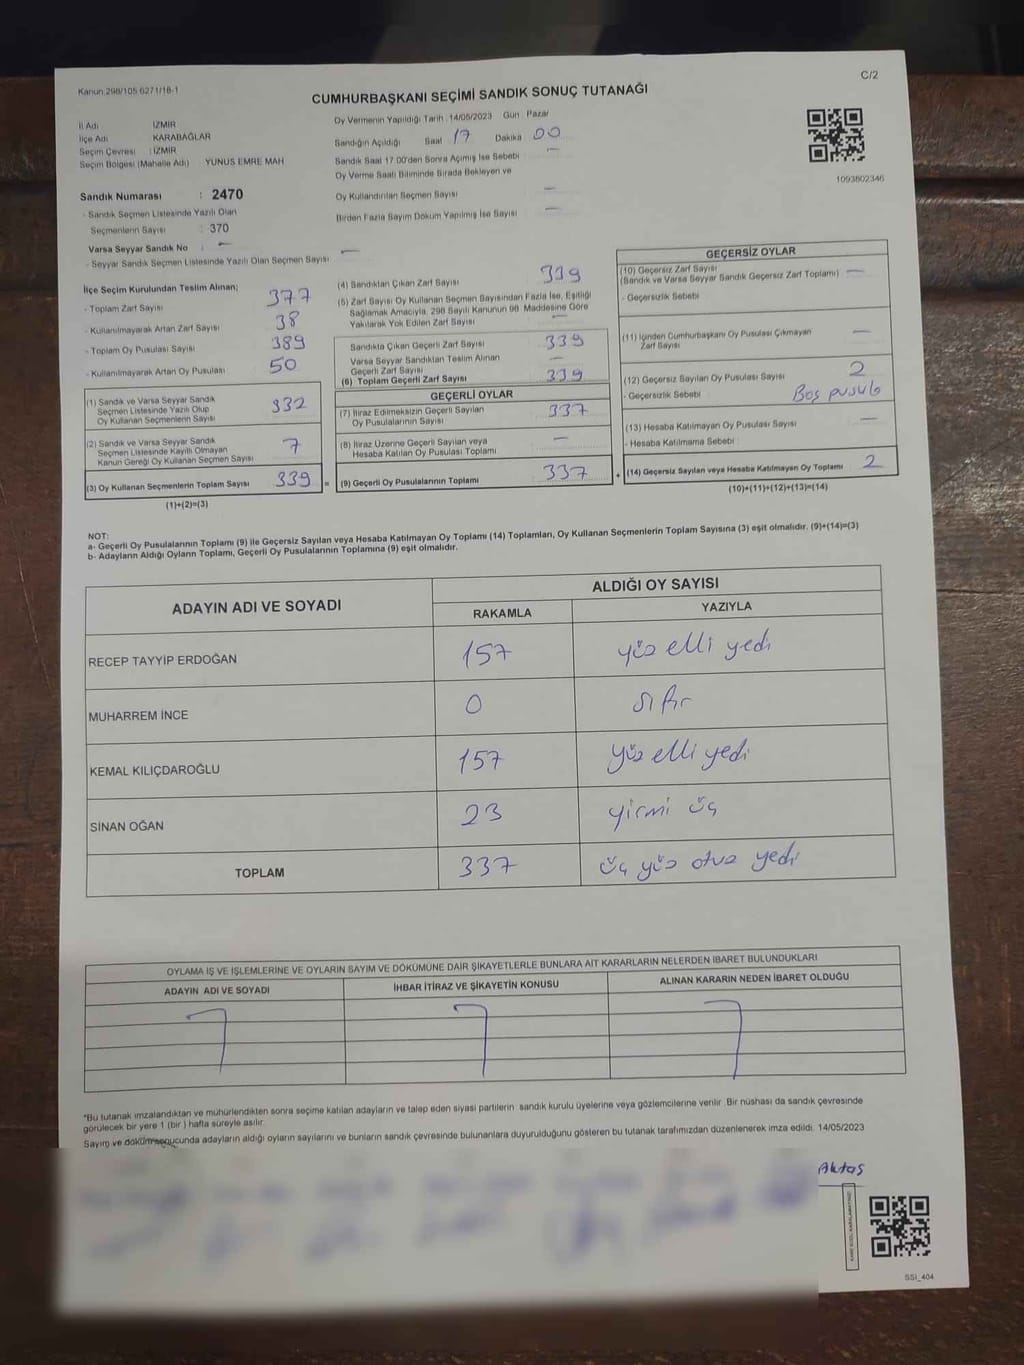 Kanun:298/105 6271/18-1
C/2
CUMHURBAŞKANI SEÇİMİ SANDIK SONUÇ TUTANAĞI
İl Adı İZMİR
İlçe Adı KARABAĞLAR
Seçim Çevresi : İZMİR
Seçim Bölgesi (Mahalle Adı) YUNUS EMRE MAH
Oy Vermenin Yapıldığı Tarih : 14/05/2023 Gün : Pazar
Sandığın Açıldığı Saat 17 Dakika 00
Sandık Saat 17.00'den Sonra Açılmış İse Sebebi —
Oy Verme Saati Bitiminde Sırada Bekleyen ve
Oy Kullandırılan Seçmen Sayısı —
Birden Fazla Sayım Döküm Yapılmış İse Sayısı —
1093802346
Sandık Numarası : 2470
- Sandık Seçmen Listesinde Yazılı Olan
Seçmenlerin Sayısı : 370
Varsa Seyyar Sandık No : —
- Seyyar Sandık Seçmen Listesinde Yazılı Olan Seçmen Sayısı —
İlçe Seçim Kurulundan Teslim Alınan;
- Toplam Zarf Sayısı 377
- Kullanılmayarak Artan Zarf Sayısı 38
- Toplam Oy Pusulası Sayısı 389
- Kullanılmayarak Artan Oy Pusulası 50
(1) Sandık ve Varsa Seyyar Sandık
Seçmen Listesinde Yazılı Olup
Oy Kullanan Seçmenlerin Sayısı 332
(2) Sandık ve Varsa Seyyar Sandık
Seçmen Listesinde Kayıtlı Olmayan
Kanun Gereği Oy Kullanan Seçmen Sayısı 7
(3) Oy Kullanan Seçmenlerin Toplam Sayısı 339 =
(1)+(2)=(3)
(4) Sandıktan Çıkan Zarf Sayısı 339
(5) Zarf Sayısı Oy Kullanan Seçmen Sayısından Fazla İse, Eşitliği
Sağlamak Amacıyla, 298 Sayılı Kanunun 98. Maddesine Göre
Yakılarak Yok Edilen Zarf Sayısı —
Sandıkta Çıkan Geçerli Zarf Sayısı 339
Varsa Seyyar Sandıktan Teslim Alınan
Geçerli Zarf Sayısı —
(6) Toplam Geçerli Zarf Sayısı 339
GEÇERLİ OYLAR
(7) İtiraz Edilmeksizin Geçerli Sayılan
Oy Pusulalarının Sayısı 337
(8) İtiraz Üzerine Geçerli Sayılan veya
Hesaba Katılan Oy Pusulası Toplamı —
(9) Geçerli Oy Pusulalarının Toplamı 337 +
GEÇERSİZ OYLAR
(10) Geçersiz Zarf Sayısı —
(Sandık ve Varsa Seyyar Sandık Geçersiz Zarf Toplamı)
- Geçersizlik Sebebi
(11) İçinden Cumhurbaşkanı Oy Pusulası Çıkmayan
Zarf Sayısı —
(12) Geçersiz Sayılan Oy Pusulası Sayısı 2
- Geçersizlik Sebebi Boş pusula
(13) Hesaba Katılmayan Oy Pusulası Sayısı —
- Hesaba Katılmama Sebebi :
(14) Geçersiz Sayılan veya Hesaba Katılmayan Oy Toplamı 2
(10)+(11)+(12)+(13)=(14)
NOT:
a- Geçerli Oy Pusulalarının Toplamı (9) ile Geçersiz Sayılan veya Hesaba Katılmayan Oy Toplamı (14) Toplamları, Oy Kullanan Seçmenlerin Toplam Sayısına (3) eşit olmalıdır. (9)+(14)=(3)
b- Adayların Aldığı Oyların Toplamı, Geçerli Oy Pusulalarının Toplamına (9) eşit olmalıdır.
ADAYIN ADI VE SOYADI
ALDIĞI OY SAYISI
RAKAMLA YAZIYLA
RECEP TAYYİP ERDOĞAN 157 yüz elli yedi
MUHARREM İNCE 0 sıfır
KEMAL KILIÇDAROĞLU 157 yüz elli yedi
SİNAN OĞAN 23 yirmi üç
TOPLAM 337 üç yüz otuz yedi
OYLAMA İŞ VE İŞLEMLERİNE VE OYLARIN SAYIM VE DÖKÜMÜNE DAİR ŞİKAYETLERLE BUNLARA AİT KARARLARIN NELERDEN İBARET BULUNDUKLARI
ADAYIN ADI VE SOYADI İHBAR İTİRAZ VE ŞİKAYETİN KONUSU ALINAN KARARIN NEDEN İBARET OLDUĞU
*Bu tutanak imzalandıktan ve mühürlendikten sonra seçime katılan adayların ve talep eden siyasi partilerin sandık kurulu üyelerine veya gözlemcilerine verilir. Bir nüshası da sandık çevresinde
görülecek bir yere 1 (bir) hafta süreyle asılır.
Sayım ve döküm sonucunda adayların aldığı oyların sayılarını ve bunların sandık çevresinde bulunanlara duyurulduğunu gösteren bu tutanak tarafımızdan düzenlenerek imza edildi. 14/05/2023
Aktaş
SSI_404